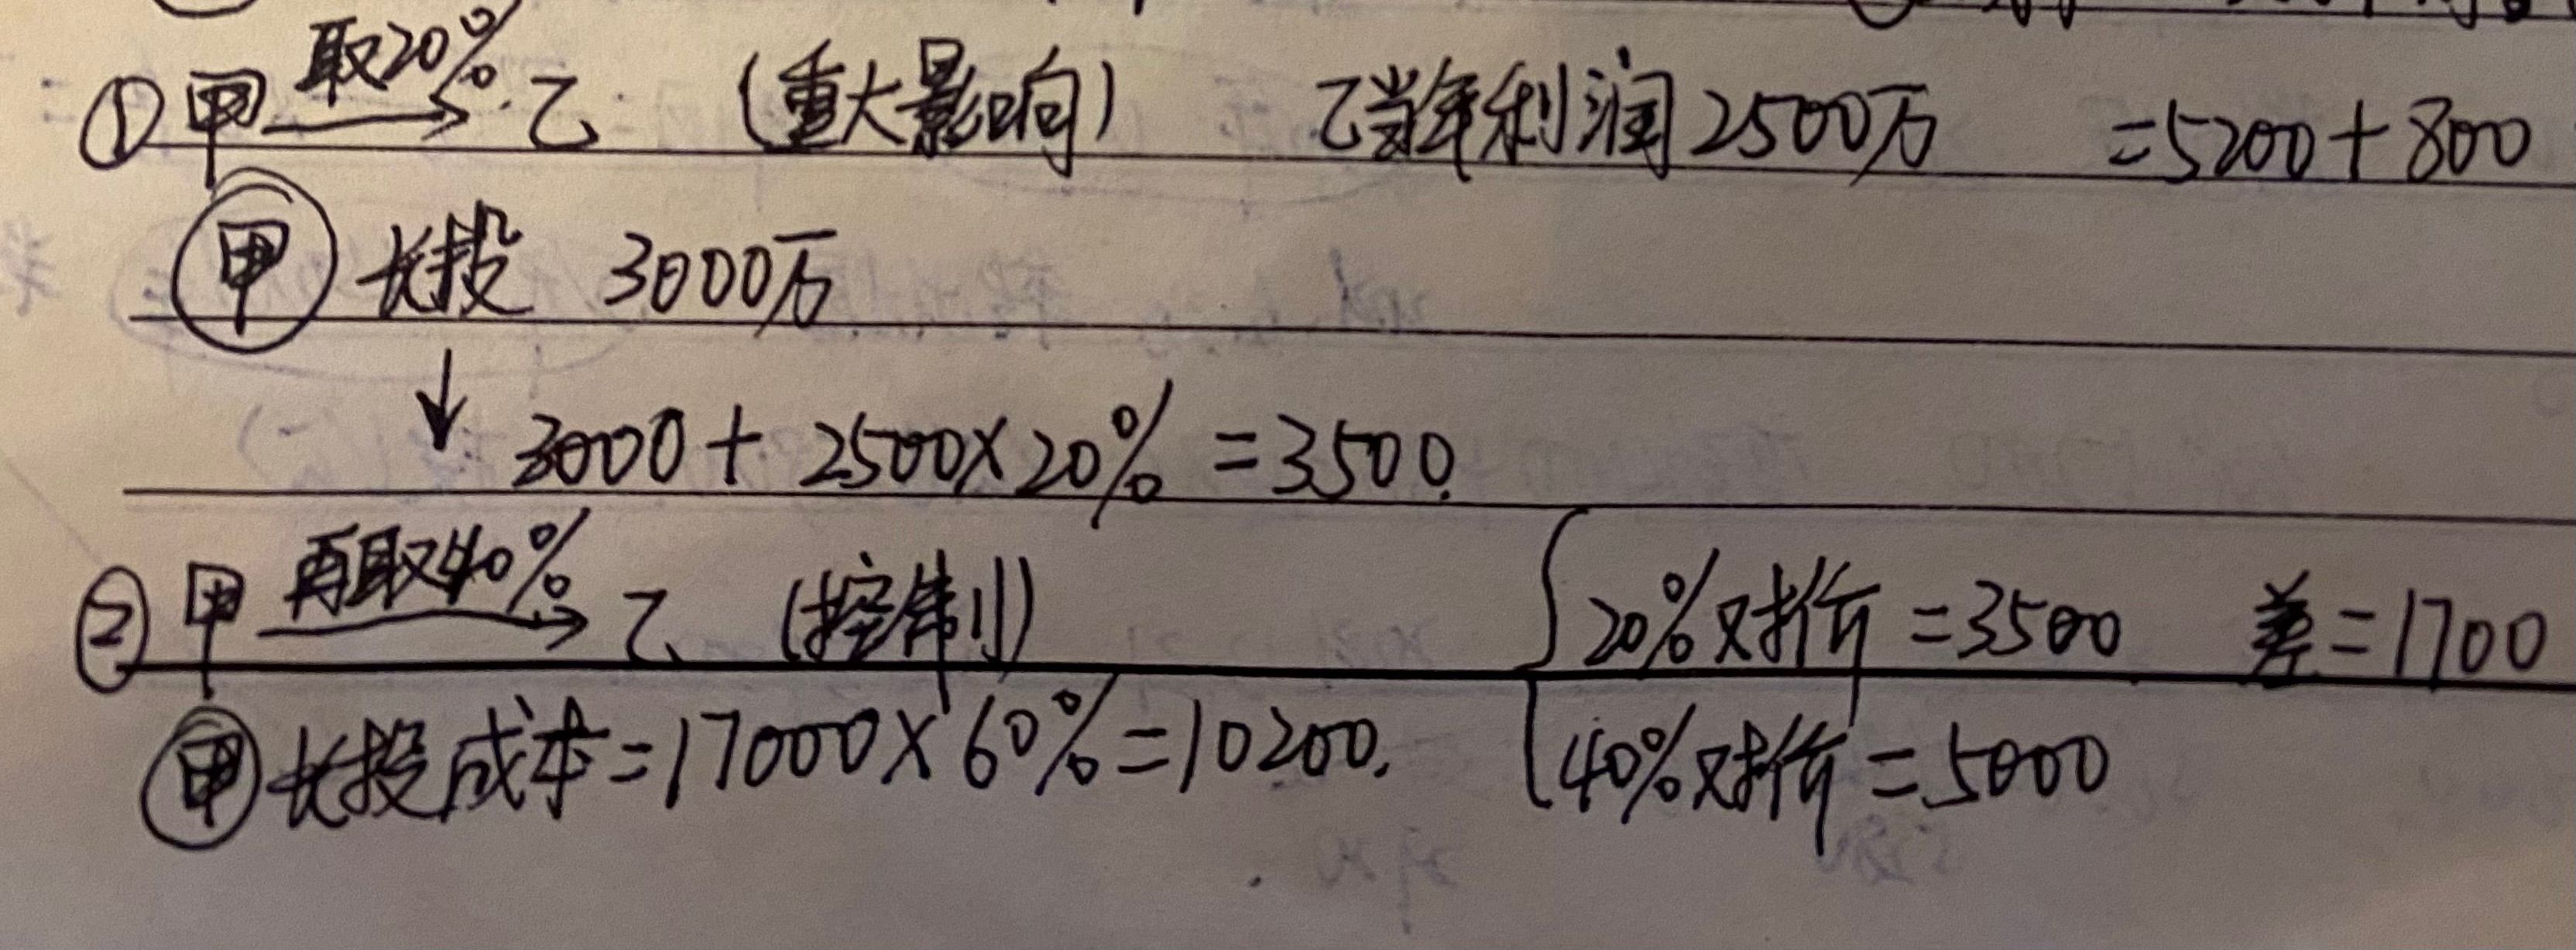 ① 甲 取20% 乙 (重大影响) 乙当年利润2500万 =5200+800
甲 长投 3000万
3000+2500×20%=3500.
② 甲 再取40% 乙 (控制) 20%对价=3500 差=1700
甲 长投成本=17000×60%=10200. 40%对价=5000